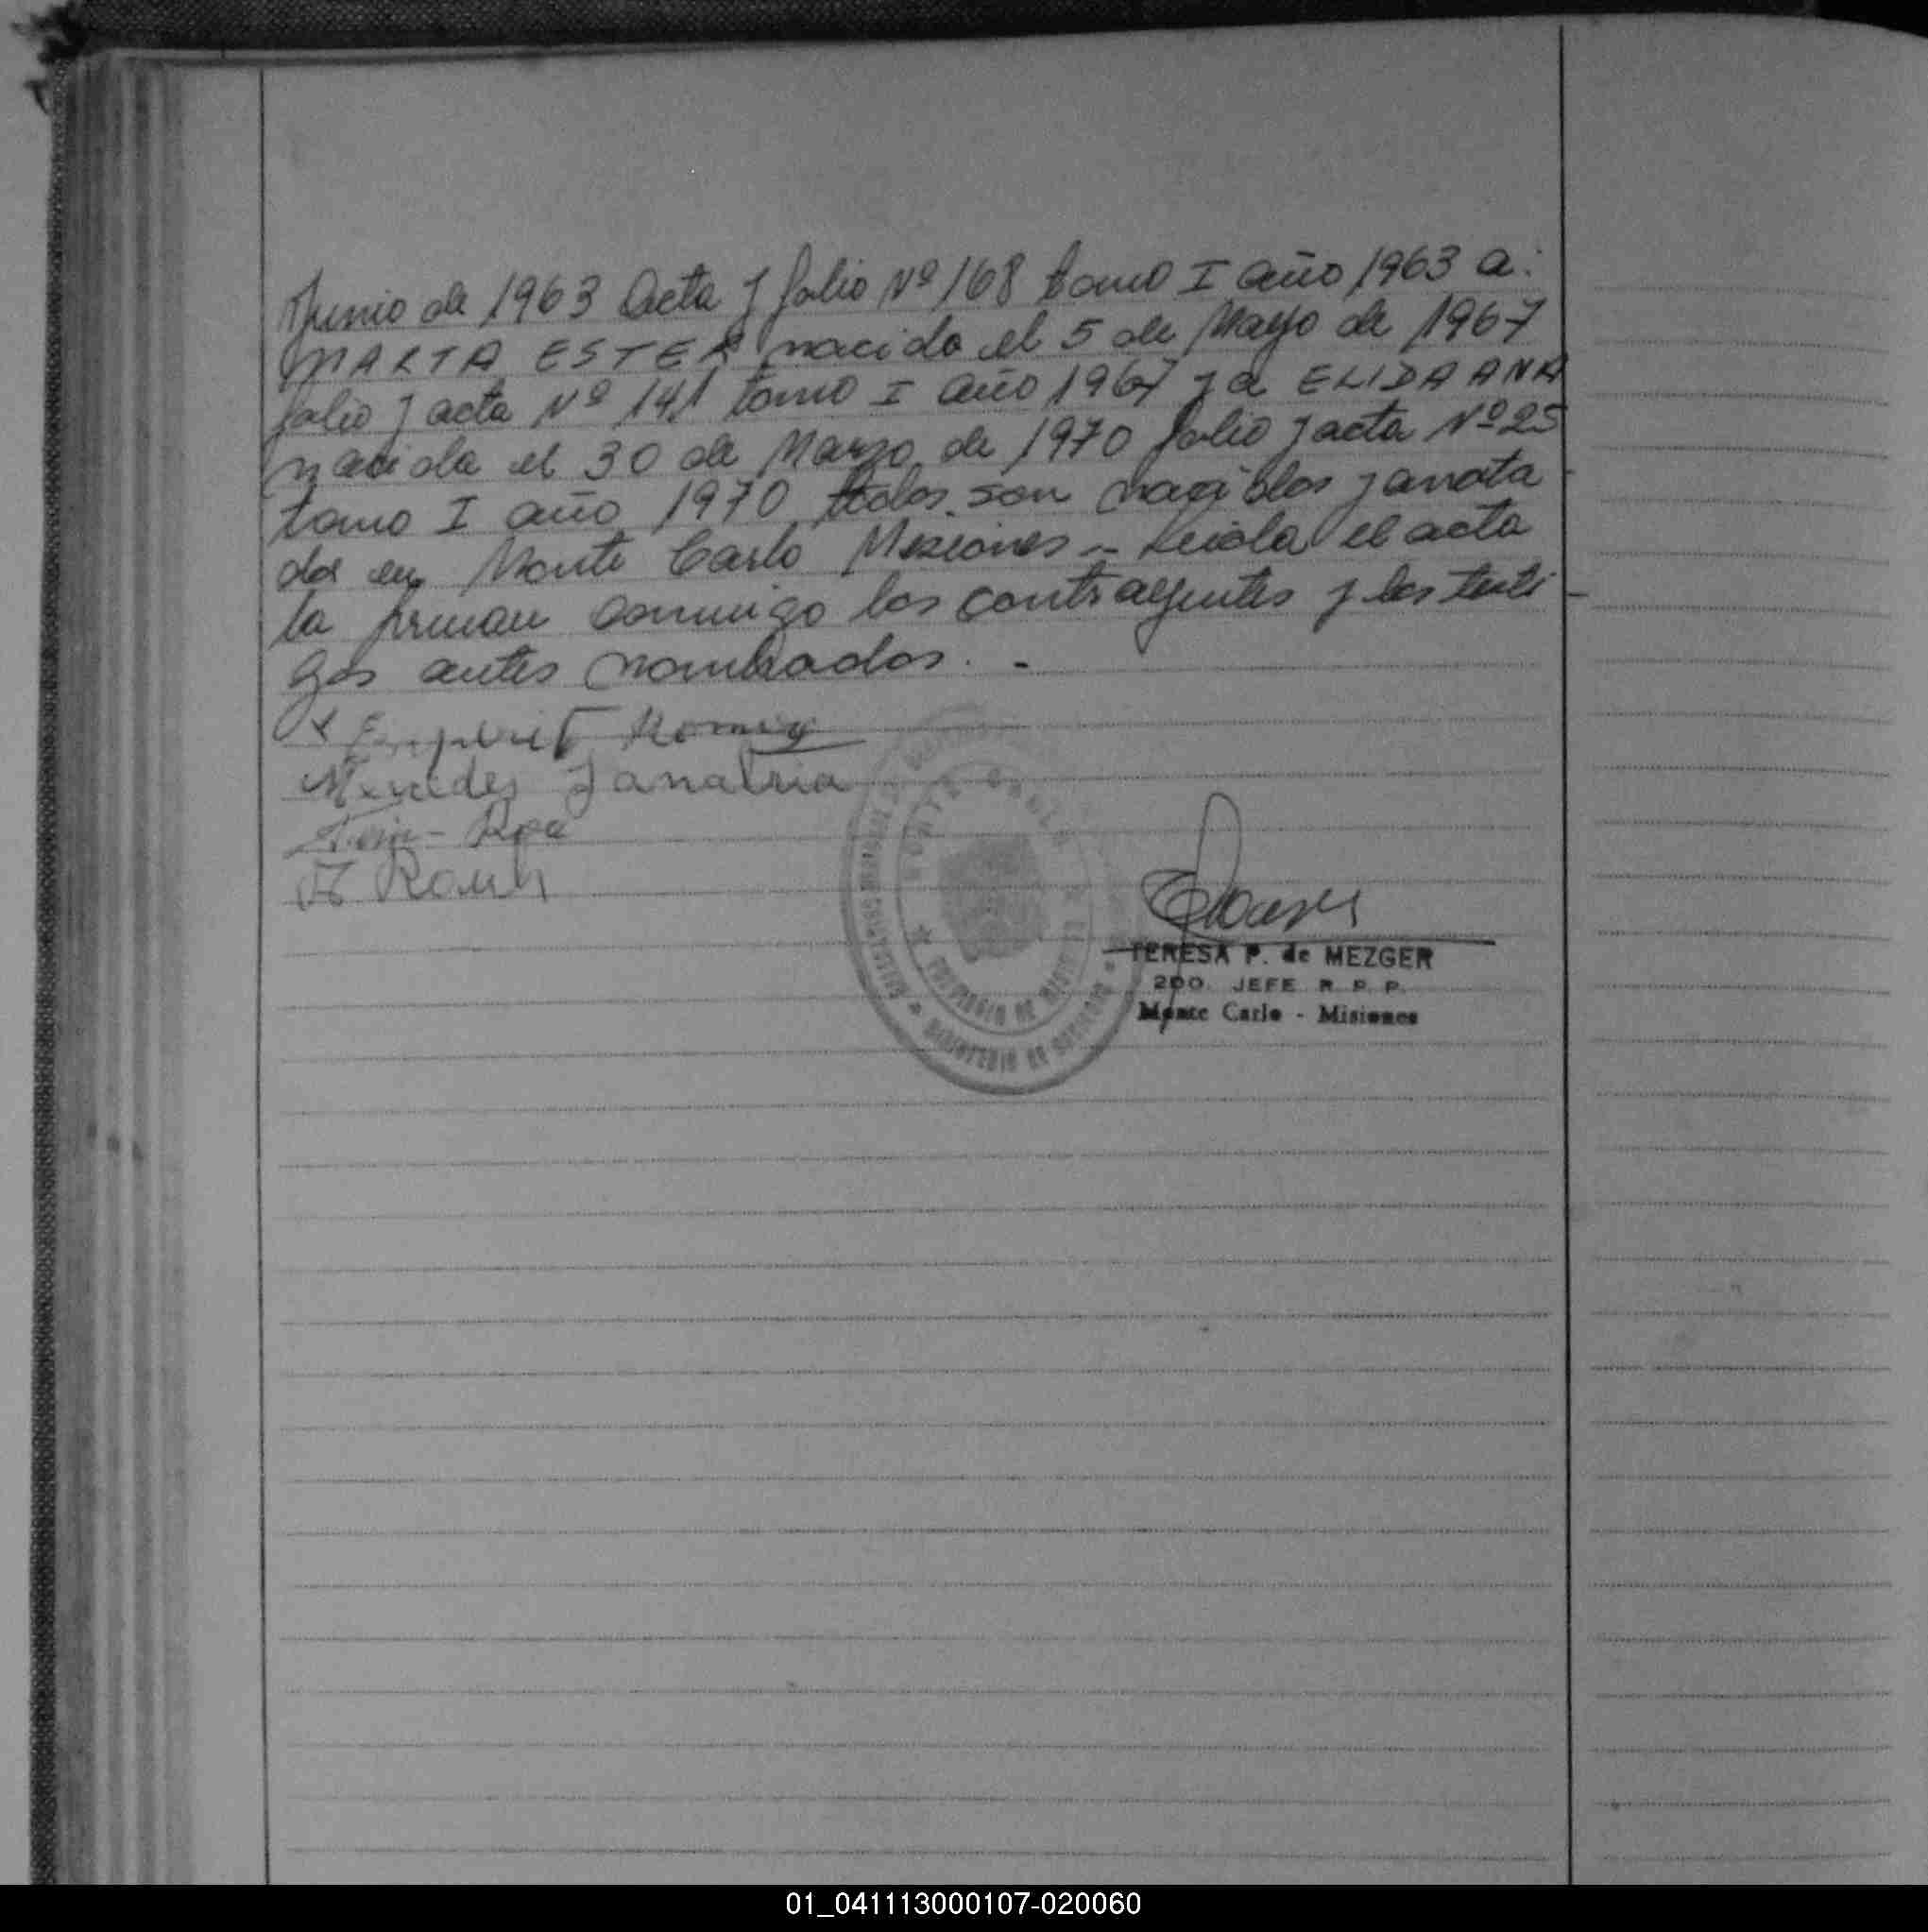 Junio de 1963 Acta y folio Nº 168 tomo I año 1963 a:
MARTA ESTER nacida el 5 de Mayo de 1967
folio y acta Nº 141 tomo I año 1967 y a ELIDA ANA
nacida el 30 de Marzo de 1970 folio y acta Nº 25
tomo I año 1970 todos son nacidos y anota
dos en Monte Carlo Misiones - Leida el acta
la firman conmigo los contrayentes y los testi-
gos antes nombrados. -
Mercedes
MONTE CARLO
MINISTERIO DE GOBIERNO
TERESA P. de MEZGER
2DO. JEFE R. P. P.
Monte Carlo - Misiones
01_041113000107-020060